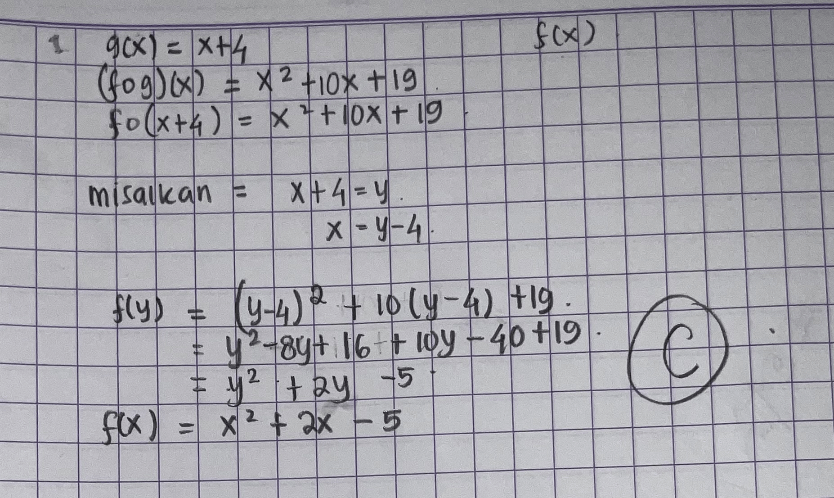 1 g(x) = x+4 f(x)
(fog)(x) = x² +10x+19
fo(x+4) = x² +10x+19
misalkan = x+4=y.
x=y-4.
f(y) = (y-4)² + 10(y-4) +19.
= y²-8y+16++10y-40+19.
= y² +2y -5
f(x) = x² + 2x - 5
C